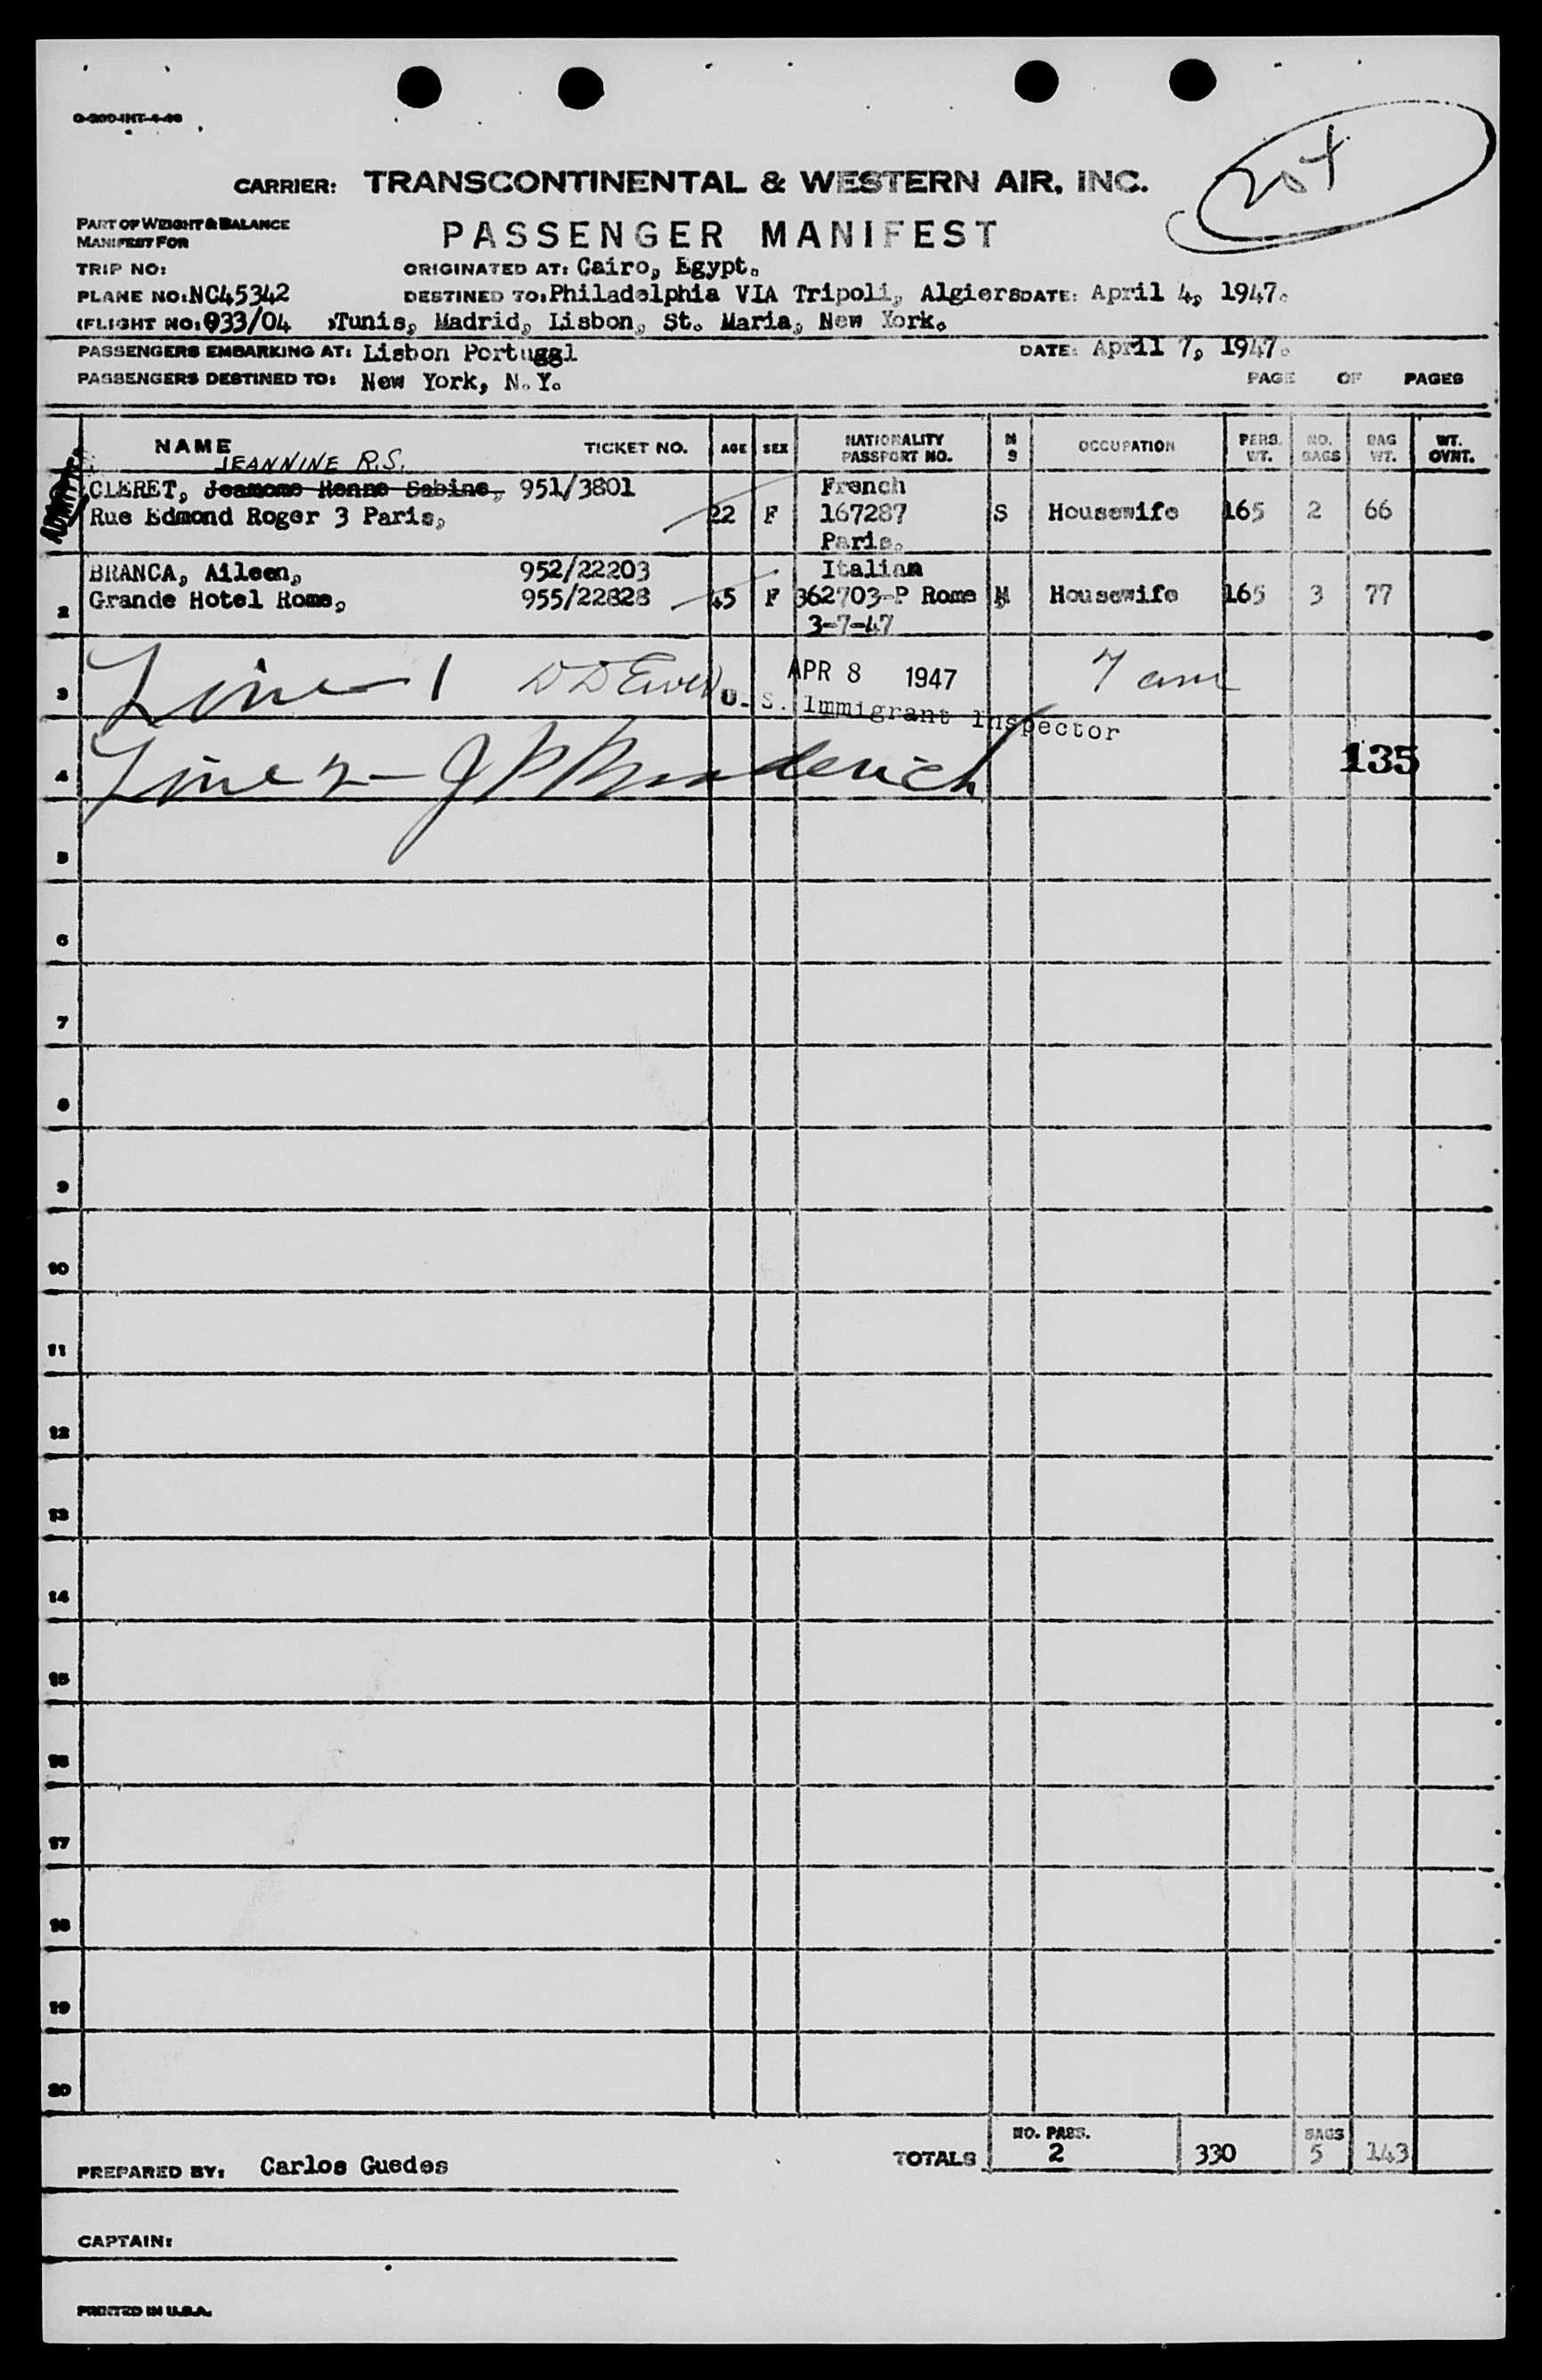 G-200-INT-4-46
204
CARRIER: TRANSCONTINENTAL & WESTERN AIR, INC.
PART OF WEIGHT & BALANCE
MANIFEST FOR
PASSENGER MANIFEST
TRIP NO: ORIGINATED AT: Cairo, Egypt.
PLANE NO: NC45342 DESTINED TO: Philadelphia VIA Tripoli, Algiers DATE: April 4, 1947.
(FLIGHT NO: 933/04 Tunis, Madrid, Lisbon, St. Maria, New York.
PASSENGERS EMBARKING AT: Lisbon Portuggl DATE: April 7, 1947.
PASSENGERS DESTINED TO: New York, N.Y. PAGE OF PAGES
NAME TICKET NO. AGE SEX NATIONALITY PASSPORT NO. M S OCCUPATION PERS. WT. NO. BAGS BAG WT. WT. OVNT.
JEANNINE R.S.
ADMITTED
CLERET, Jeamome Renne Sabine, 951/3801 French
Rue Edmond Roger 3 Paris, 22 F 167287 S Housewife 165 2 66
Paris.
BRANCA, Aileen, 952/22203 Italian
2 Grande Hotel Rome, 955/22828 45 F 362703-P Rome M Housewife 165 3 77
3-7-47
3 Line 1 APR 8 1947 7 am
U.S. Immigrant Inspector
4 Line 2 - J P Broderick 135
5
6
7
8
9
10
11
12
13
14
15
16
17
18
19
20
TOTALS NO. PASS. 2 330 BAGS 5 143
PREPARED BY: Carlos Guedes
CAPTAIN:
PRINTED IN U.S.A.